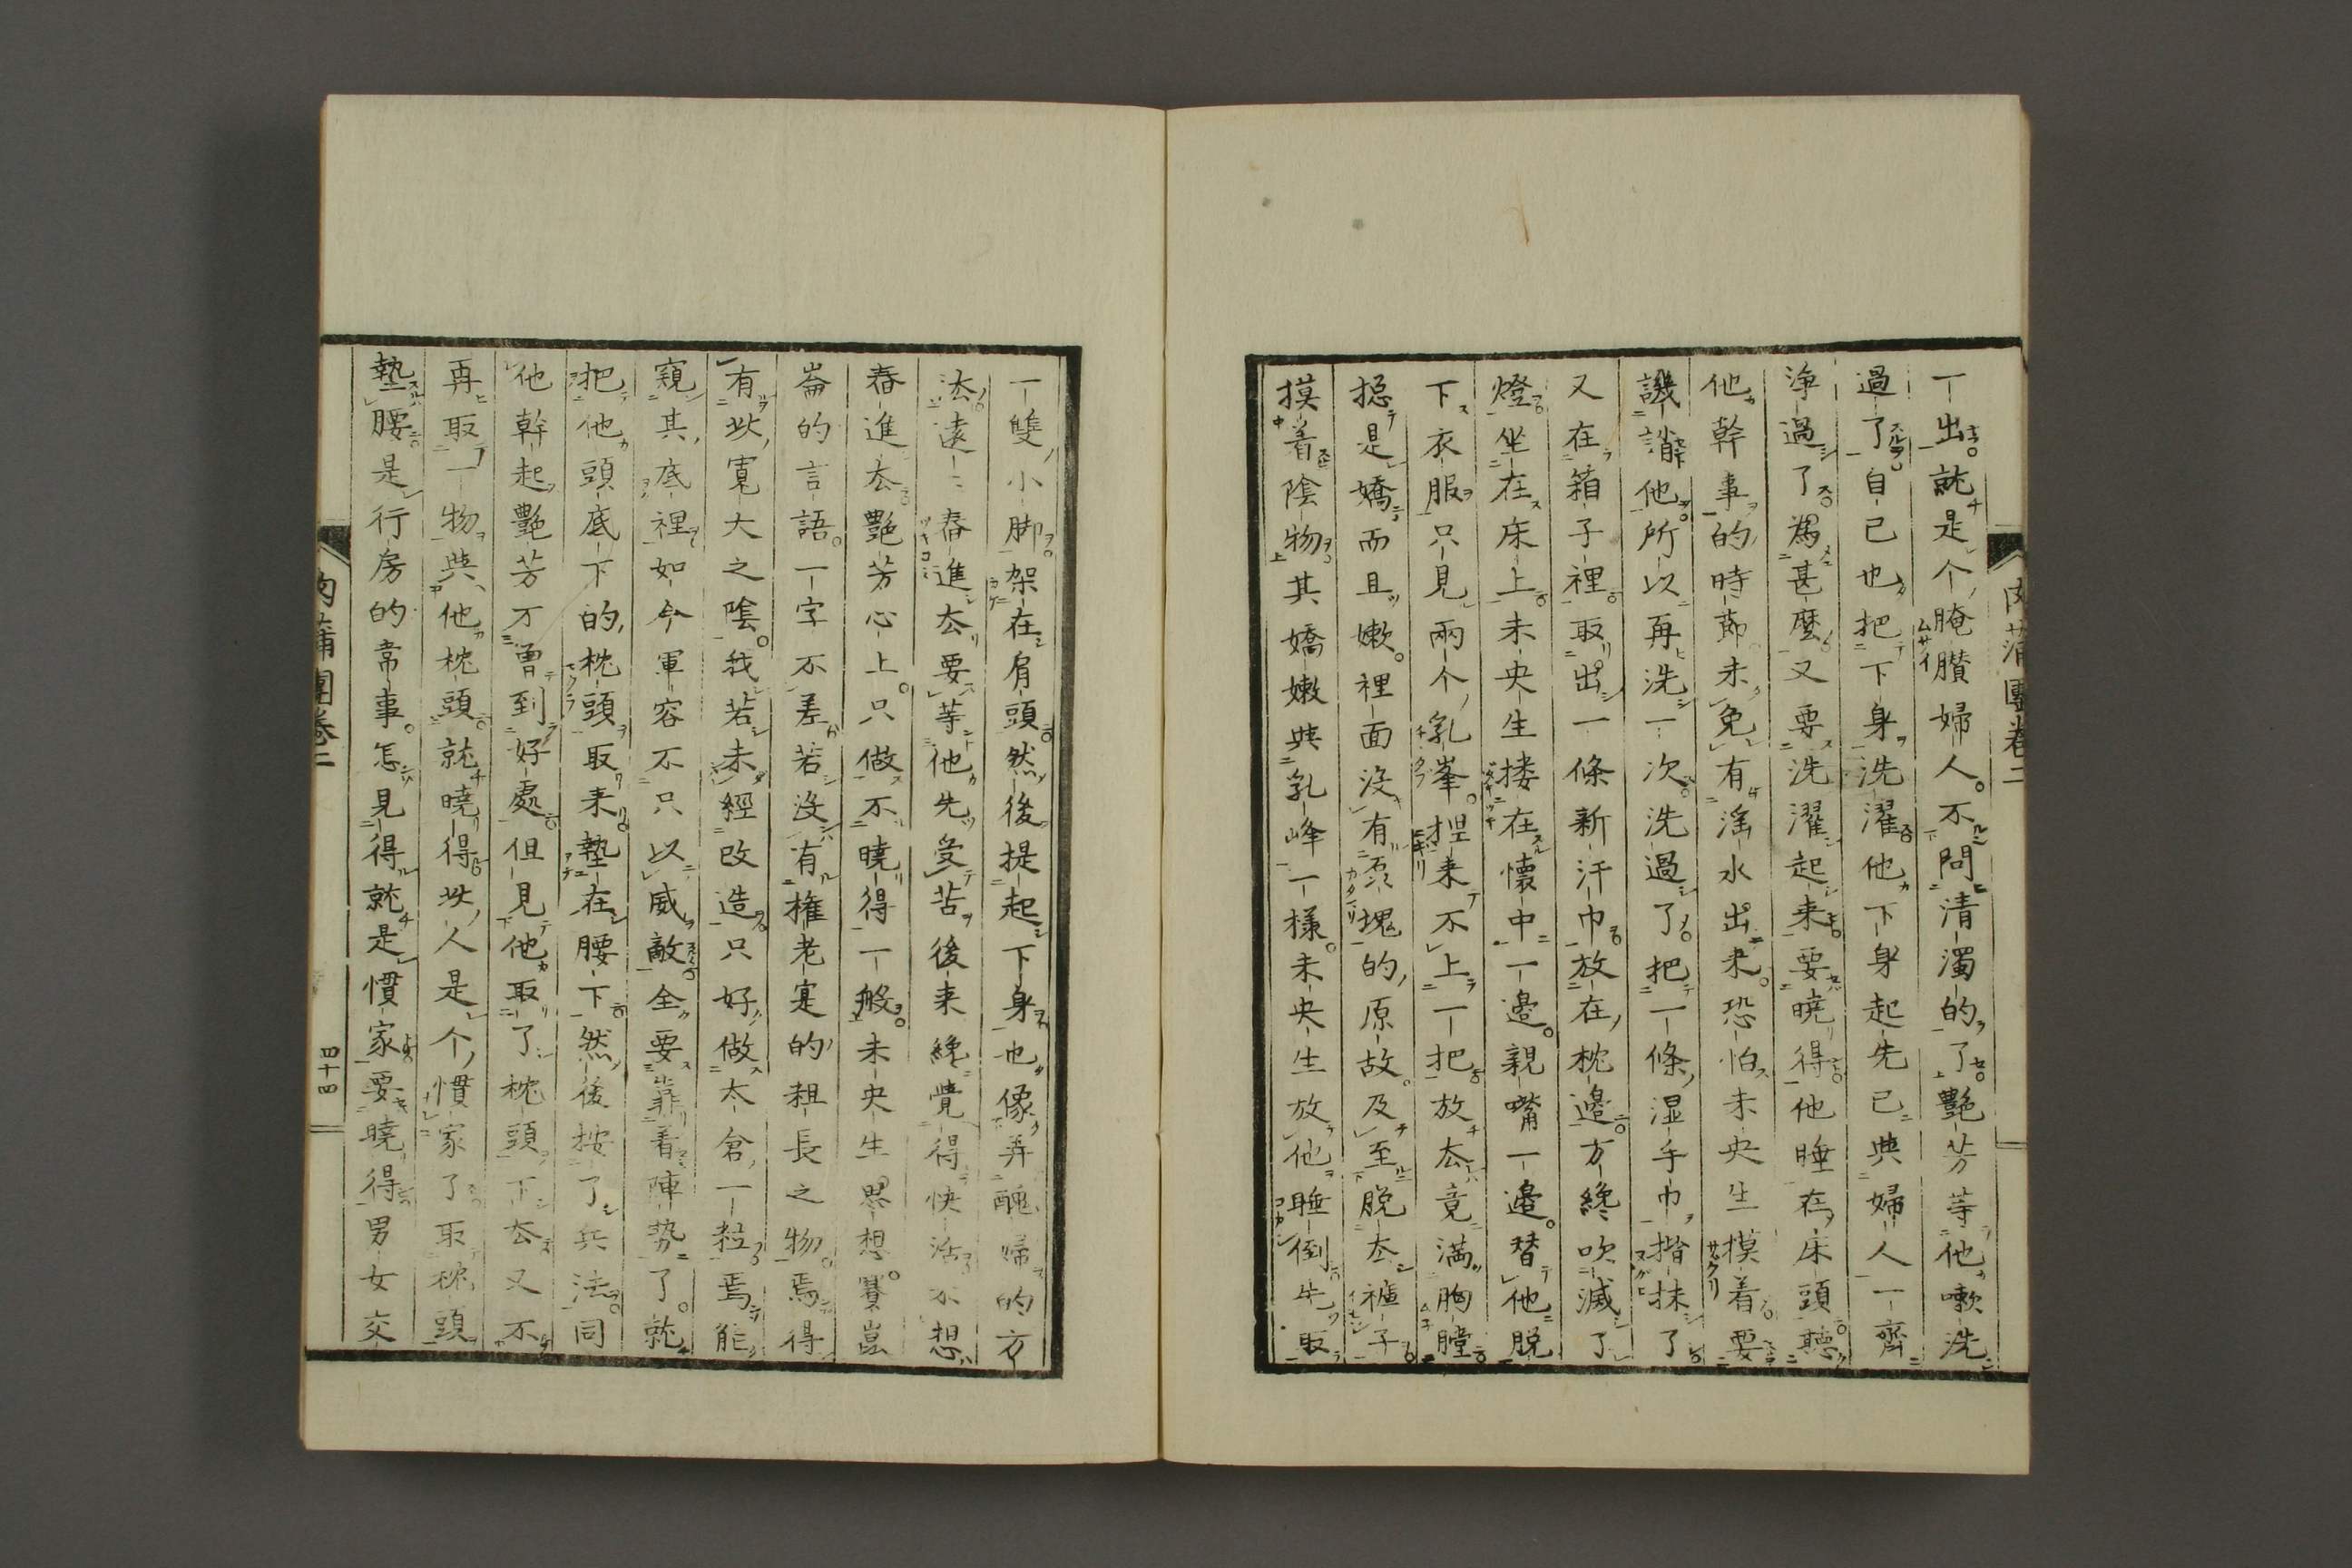 肉蒲團卷二
一出就是个腌臢婦人不問清濁的了艷芳等他嗽洗
過了自已也把下身洗濯他下身起先已與婦人一齊
淨過了為甚麼又要洗濯起来要曉得他睡在床頭聽
他幹事的時節未免有淫水出来恐怕未央生摸着要
譏誚他所以再洗一次洗過了把一條湿手巾揩抹了
又在箱子裡取出一條新汗巾放在枕邉方纔吹滅了
燈坐在床上未央生摟在懷中一邉親嘴一邉替他脱
下衣服只見兩个乳峯揑来不上一把放厺竟満胸膛
捴是嬌而且嫩裡面没有塊的原故及至脱厺褲子
摸着陰物其嬌嫩與乳峰一様未央生放他睡倒先取
一雙小脚架在肩頭然後提起下身也像弄醜婦的方
法遠遠舂進厺要等他先受苦後来纔覺得快活不想
舂進厺艷芳心上只做不曉得一般未央生思想賽崑
崙的言語一字不差若没有權老寔的粗長之物焉得
有此寛大之陰我若未經改造只好做太倉一粒焉能
窺其底裡如今軍容不只以威敵全要靠着陣勢了就
把他頭底下的枕頭取来墊在腰下然後按了兵法同
他幹起艷芳不曾到好處但見他取了枕頭下厺又不
再取一物與他枕頭就曉得此人是个慣家了取枕頭
墊腰是行房的常事怎見得就是慣家要曉得男女交
肉蒲團卷二
四十四